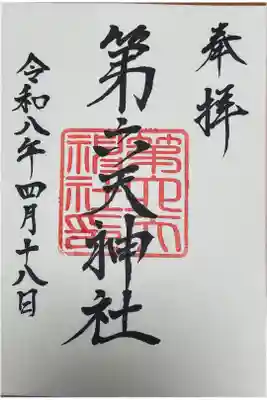 奉拝
第六天神社
第六天
神社印
令和八年四月十八日